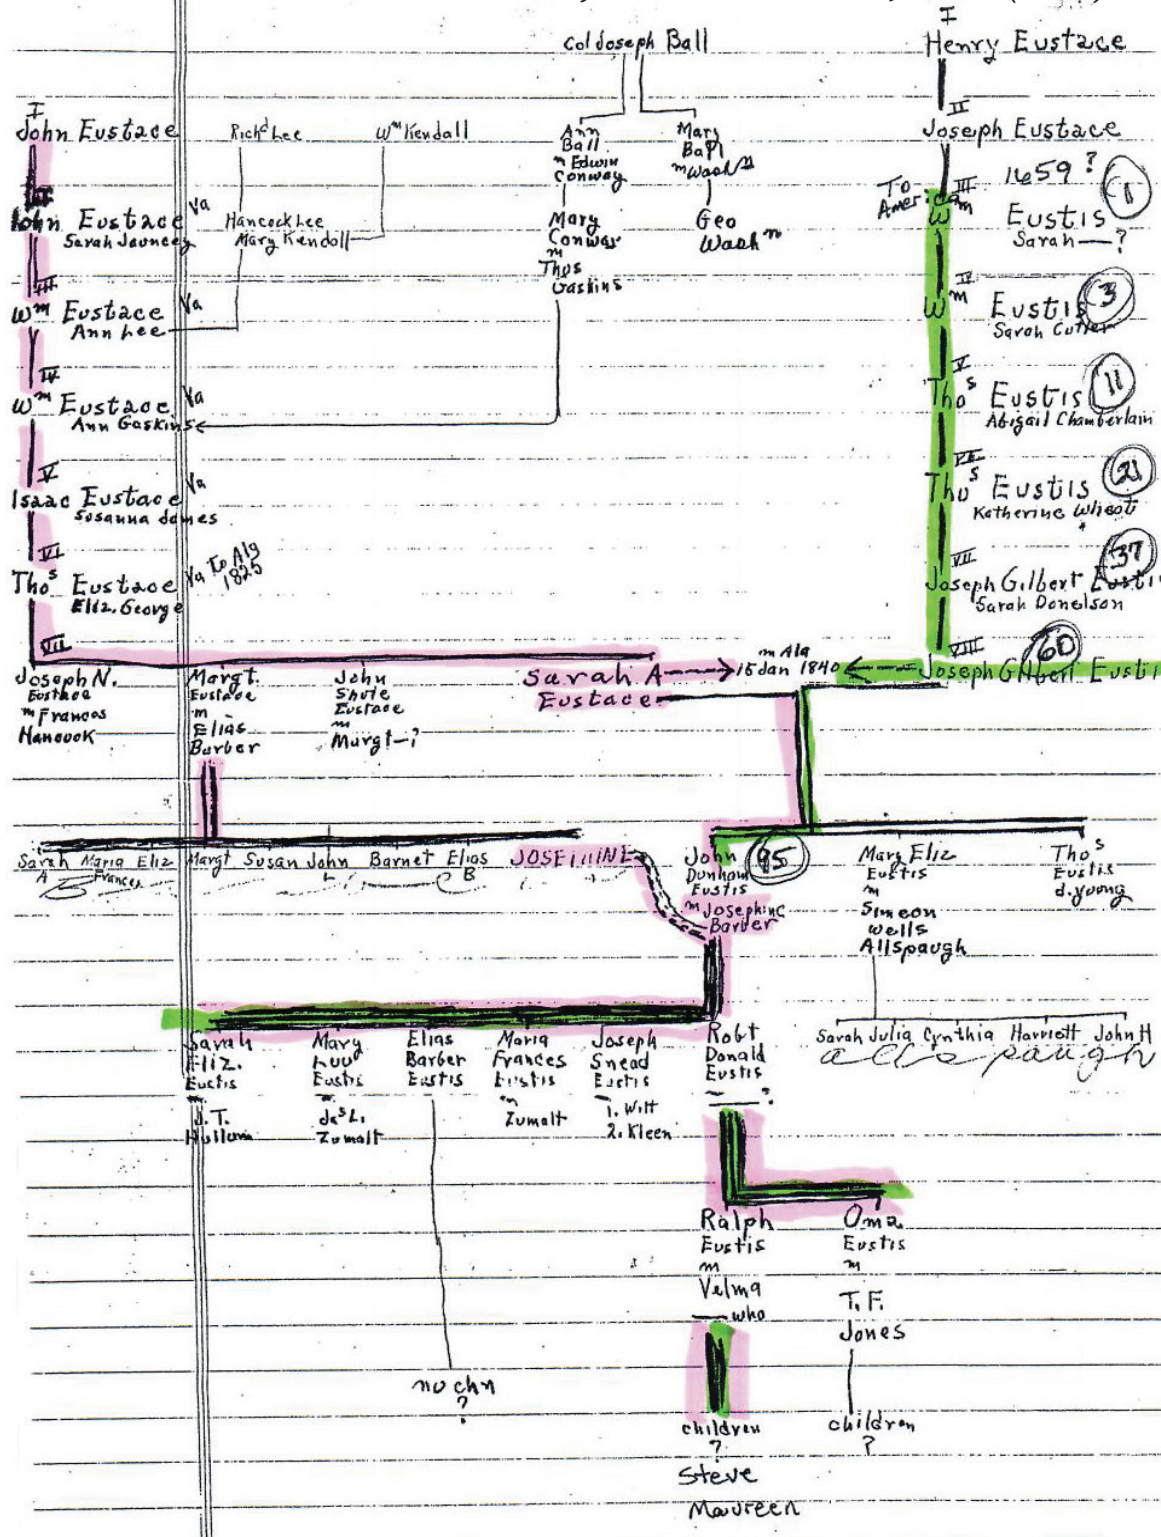 I
Col Joseph Ball
Henry Eustace
I
II
John Eustace
Richd Lee
Wm Kendall
Ann
Ball
m Edwin
Conway
Mary
Ball
m Washn
Joseph Eustace
To
America
III
1659 ?
1
John Eustace Va
Sarah Jauncey
Hancock Lee
Mary Kendall
Mary
Conway
m
Thos
Gaskins
Geo
Washn
Wm Eustis
Sarah — ?
III
Wm Eustace Va
Ann Lee
IV
Wm Eustis 3
Sarah Cutler
IV
Wm Eustace Va
Ann Gaskins
V
Thos Eustis 11
Abigail Chamberlain
V
Isaac Eustace Va
Susanna James
VI
Thos Eustis 21
Katherine
VI
Thos Eustace Va to Ala
1825
Eliz. George
VII
37
Joseph Gilbert Eustis
Sarah Donelson
VII
VIII
60
Joseph N.
Eustace
m Frances
Hancock
Margt.
Eustace
m
Elias
Barber
John
Shute
Eustace
m
Margt — ?
Sarah A
Eustace
m Ala
15 Jan 1840
Joseph Gilbert Eustis
Sarah
A
Maria
Frances
Eliz
Margt
Susan
John
L
Barnet
Elias
B
JOSEPHINE
John
Dunham
Eustis
m Josephine
Barber
95
Mary Eliz
Eustis
m
Simeon
Wells
Allspaugh
Thos
Eustis
d. young
Sarah
Eliz.
Eustis
m.
J. T.
Hullum
Mary
Luu
Eustis
m.
Jas L.
Zumalt
Elias
Barber
Eustis
Maria
Frances
Eustis
m
Zumalt
Joseph
Snead
Eustis
1. Wilt
2. Kleen
Robt
Donald
Eustis
— ?
Sarah Julia Cynthia Harriett John H
allspaugh
Ralph
Eustis
m
Velma
— who
Oma
Eustis
m
T. F.
Jones
no chn
?
children
?
Steve
Maureen
children
?